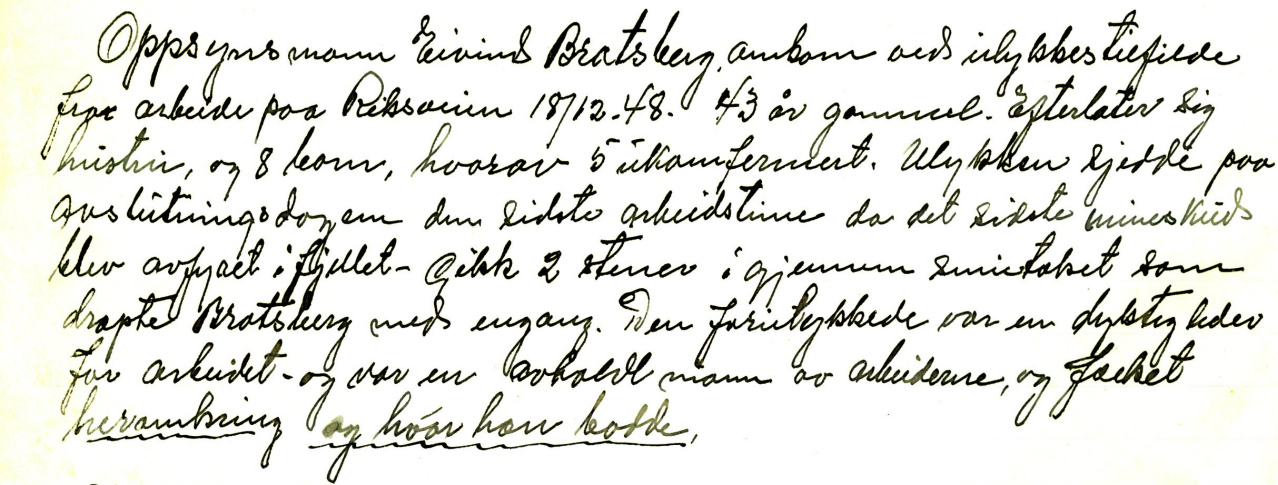 Oppsynsmann Eivind Bratsberg, omkom ved ulykkestilfelde
fra arbeide paa Riksveien 18/12-48. 43 år gammel. Efterlater sig
hustru, og 8 barn, hvorav 5 ukonfermert. Ulykken sjedde paa
avslutningsdagen den sidste arbeidstime da det sidste mineskud
blev avfyret i fjellet - Gikk 2 stener igjennem smietaket som
drapte Bratsberg med engang. Den forulykkede var en dyktig leder
for arbeidet - og var en avholdt mann av arbeiderne, og folket
heromkring og hvor han bodde,